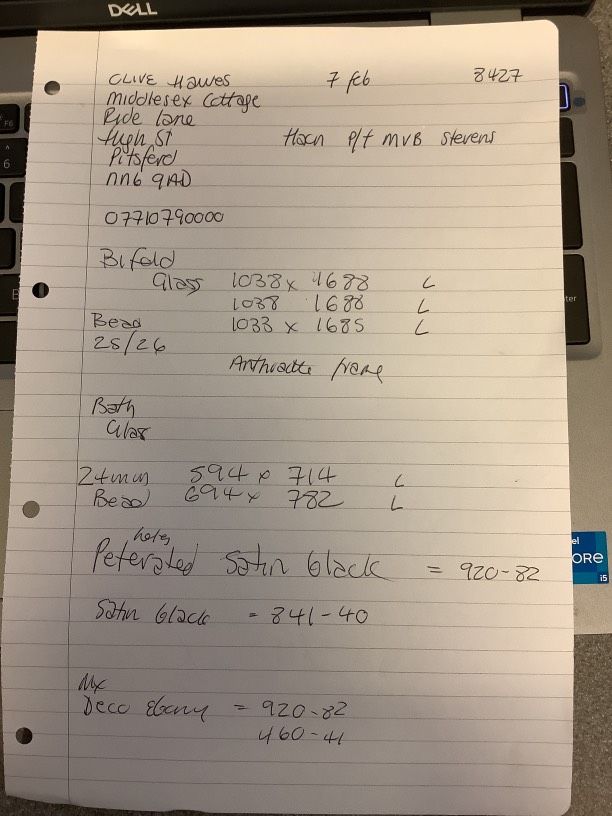 DELL
CLIVE Hawes 7 feb 8427
Middlesex Cottage
Ride lane
High St Hscn P/t MVB Stevens
Pitsferd
NN6 9AD
07710790000
Bifold
Glass 1038 x 1688 L
1038 1688 L
Bead 1033 x 1685 L
25/26
Anthracite frame
Bath
Glass
24mm 594 x 714 L
Bead 694 x 782 L
holes
Peterated Satin black = 920-82
Satin black = 841-40
Mx
Deco Ebony = 920-82
460-41
el
ORE
i5
F6
6
ter